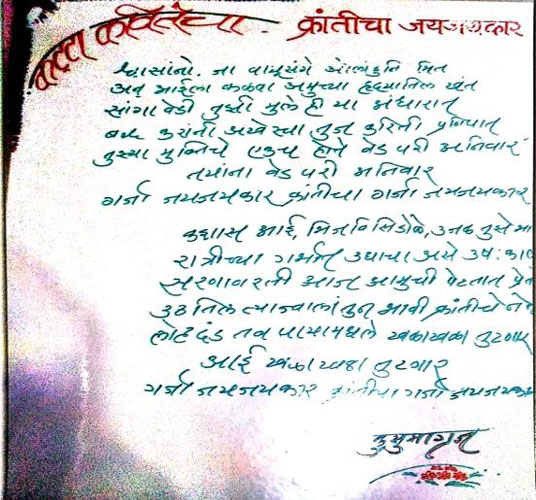 कट्टा कवितेचा
क्रांतीचा जयजयकार
श्वासांनो, जा वायूसंगे ओलांडुनि भिंत
अन् आईला कळवा अमुच्या हृदयातिल खंत
सांगा वेडी तुझी मुले ही या अंधारात
बद्ध करांनी अखेरचा तुज करिती प्रणिपात
तुझ्या मुक्तिचे एकच होते वेड परी अनिवार
तयांना वेड परी अनिवार
गर्जा जयजयकार क्रांतीचा गर्जा जयजयकार
कशास आई, भिजविसि डोळे, उजळ तुझे
रात्रीच्या गर्भात उद्याचा असे उषःकाल
सरणावरती आज आमुची पेटतात प्रेते
उठतिल त्या ज्वालांतुन भावी क्रांतीचे
लोहदंड तव पायांमधले खळाखळा तुटणार
आई खळाखळा तुटणार
गर्जा जयजयकार क्रांतीचा गर्जा जयजयकार
कुसुमाग्रज